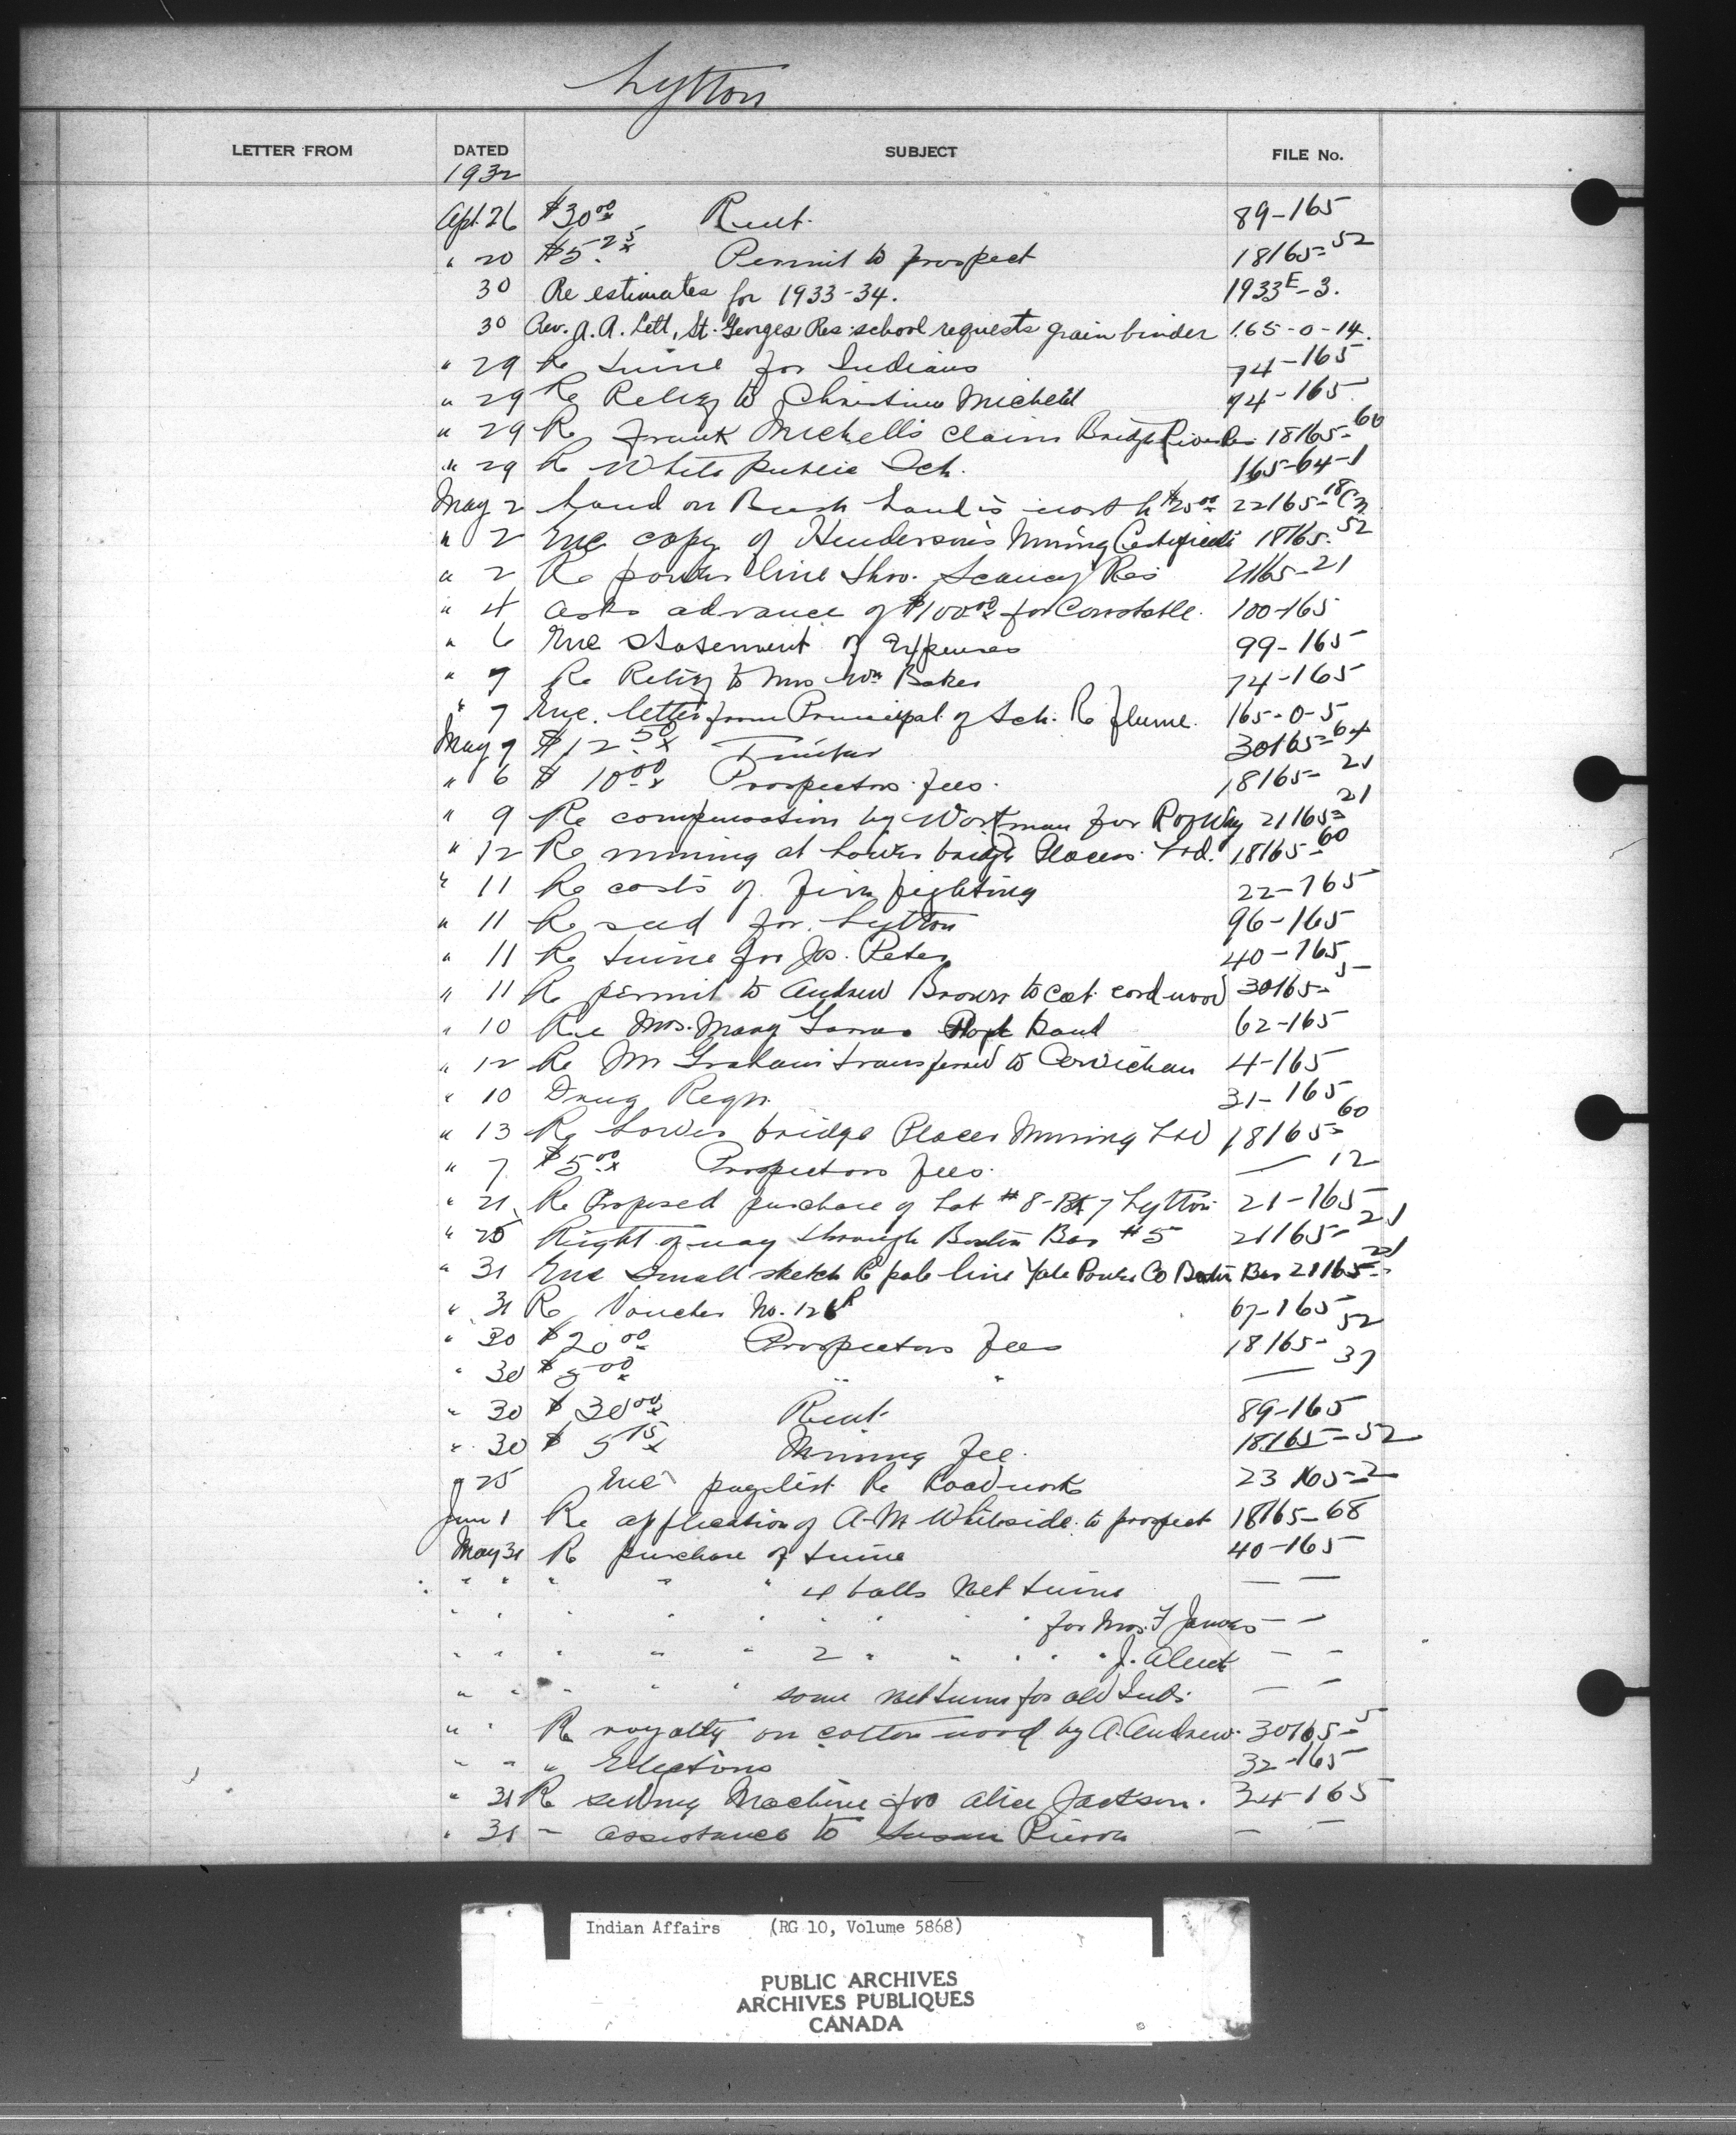 Lytton
LETTER FROM DATED SUBJECT FILE No.
1932
Apl. 26 $30.00 Rent. 89-165
" 20 $5.25 Permit to prospect 18165-52
30 Re estimates for 1933-34. 1933E-3.
30 Rev. A. R. Lett, St. Georges Res. school requests grain binder 165-0-14.
" 29 Re twine for Indians 74-165
" 29 Re Relief to Christine Michell 74-165
" 29 Re Frank Michell's claim Bridge River 18165-60
" 29 Re White public Sch. 165-64-1
May 2 Land on Bush Land is worth $25.00 22165-18
" 2 Enc copy of Henderson's Mining Certificate 18165-52
" 2 Re power line thro. Scaucy Res 21165-21
" 4 Asks advance of $100.00 for Constable. 100-165
" 6 Enc statement of Expenses 99-165
" 7 Re Relief to Mrs Wm Baker 74-165
" 7 Enc. letter from Principal of Sch. Re flume. 165-0-5
May 9 $12.50 Timber 30165-64
" 6 $10.00 Prospectors fees. 18165-21
" 9 Re compensation by Workman for R of Way 21165-21
" 12 Re mining at Lower bridge Placers Ltd. 18165-60
" 11 Re costs of fire fighting 22-165
" 11 Re seed for Lytton 96-165
" 11 Re twine for Jas. Peter 40-165
" 11 Re permit to Andrew Brown to cut cord wood 30165-5
" 10 Mrs. Mary 62-165
" 12 Re Mr Graham transferred to Cowichan 4-165
" 10 Drug Reqn. 31-165
" 13 Re Lower bridge Placer Mining Ltd 18165-60
" 7 $5.00 Prospectors fees. — 12
" 21 Re Proposed purchase of Lot #8-Bk 7 Lytton 21-165
" 25 Right of way through Boston Bar #5 21165-21
" 31 Enc small sketch Re pole line Yale Power Co Boston Bar 21165-21
" 31 Re Voucher No. 126R 67-165
" 30 $20.00 Prospectors fees 18165-52
" 30 $5.00 " " — 37
" 30 $30.00 Rent 89-165
" 30 $5.15 Mining fee. 18165-52
" 25 Enc paylist Re Road work 23165-2
June 1 Re application of A. M. Whiteside to prospect 18165-68
May 31 Re purchase of twine 40-165
" " " " " 4 balls Net twine — —
" " " " " " " " " for Mrs. F James — —
" " " " " 2 " " " " " J. — —
" " " " " some net twine for old Inds. — —
" " Re royalty on cotton wood by A. Andrew 30165-5
" " " Elections 32-165
" 31 Re sewing Machine for Alice Jackson. 34-165
" 31 - assistance to Susan — —
Indian Affairs (RG 10, Volume 5868)
PUBLIC ARCHIVES
ARCHIVES PUBLIQUES
CANADA